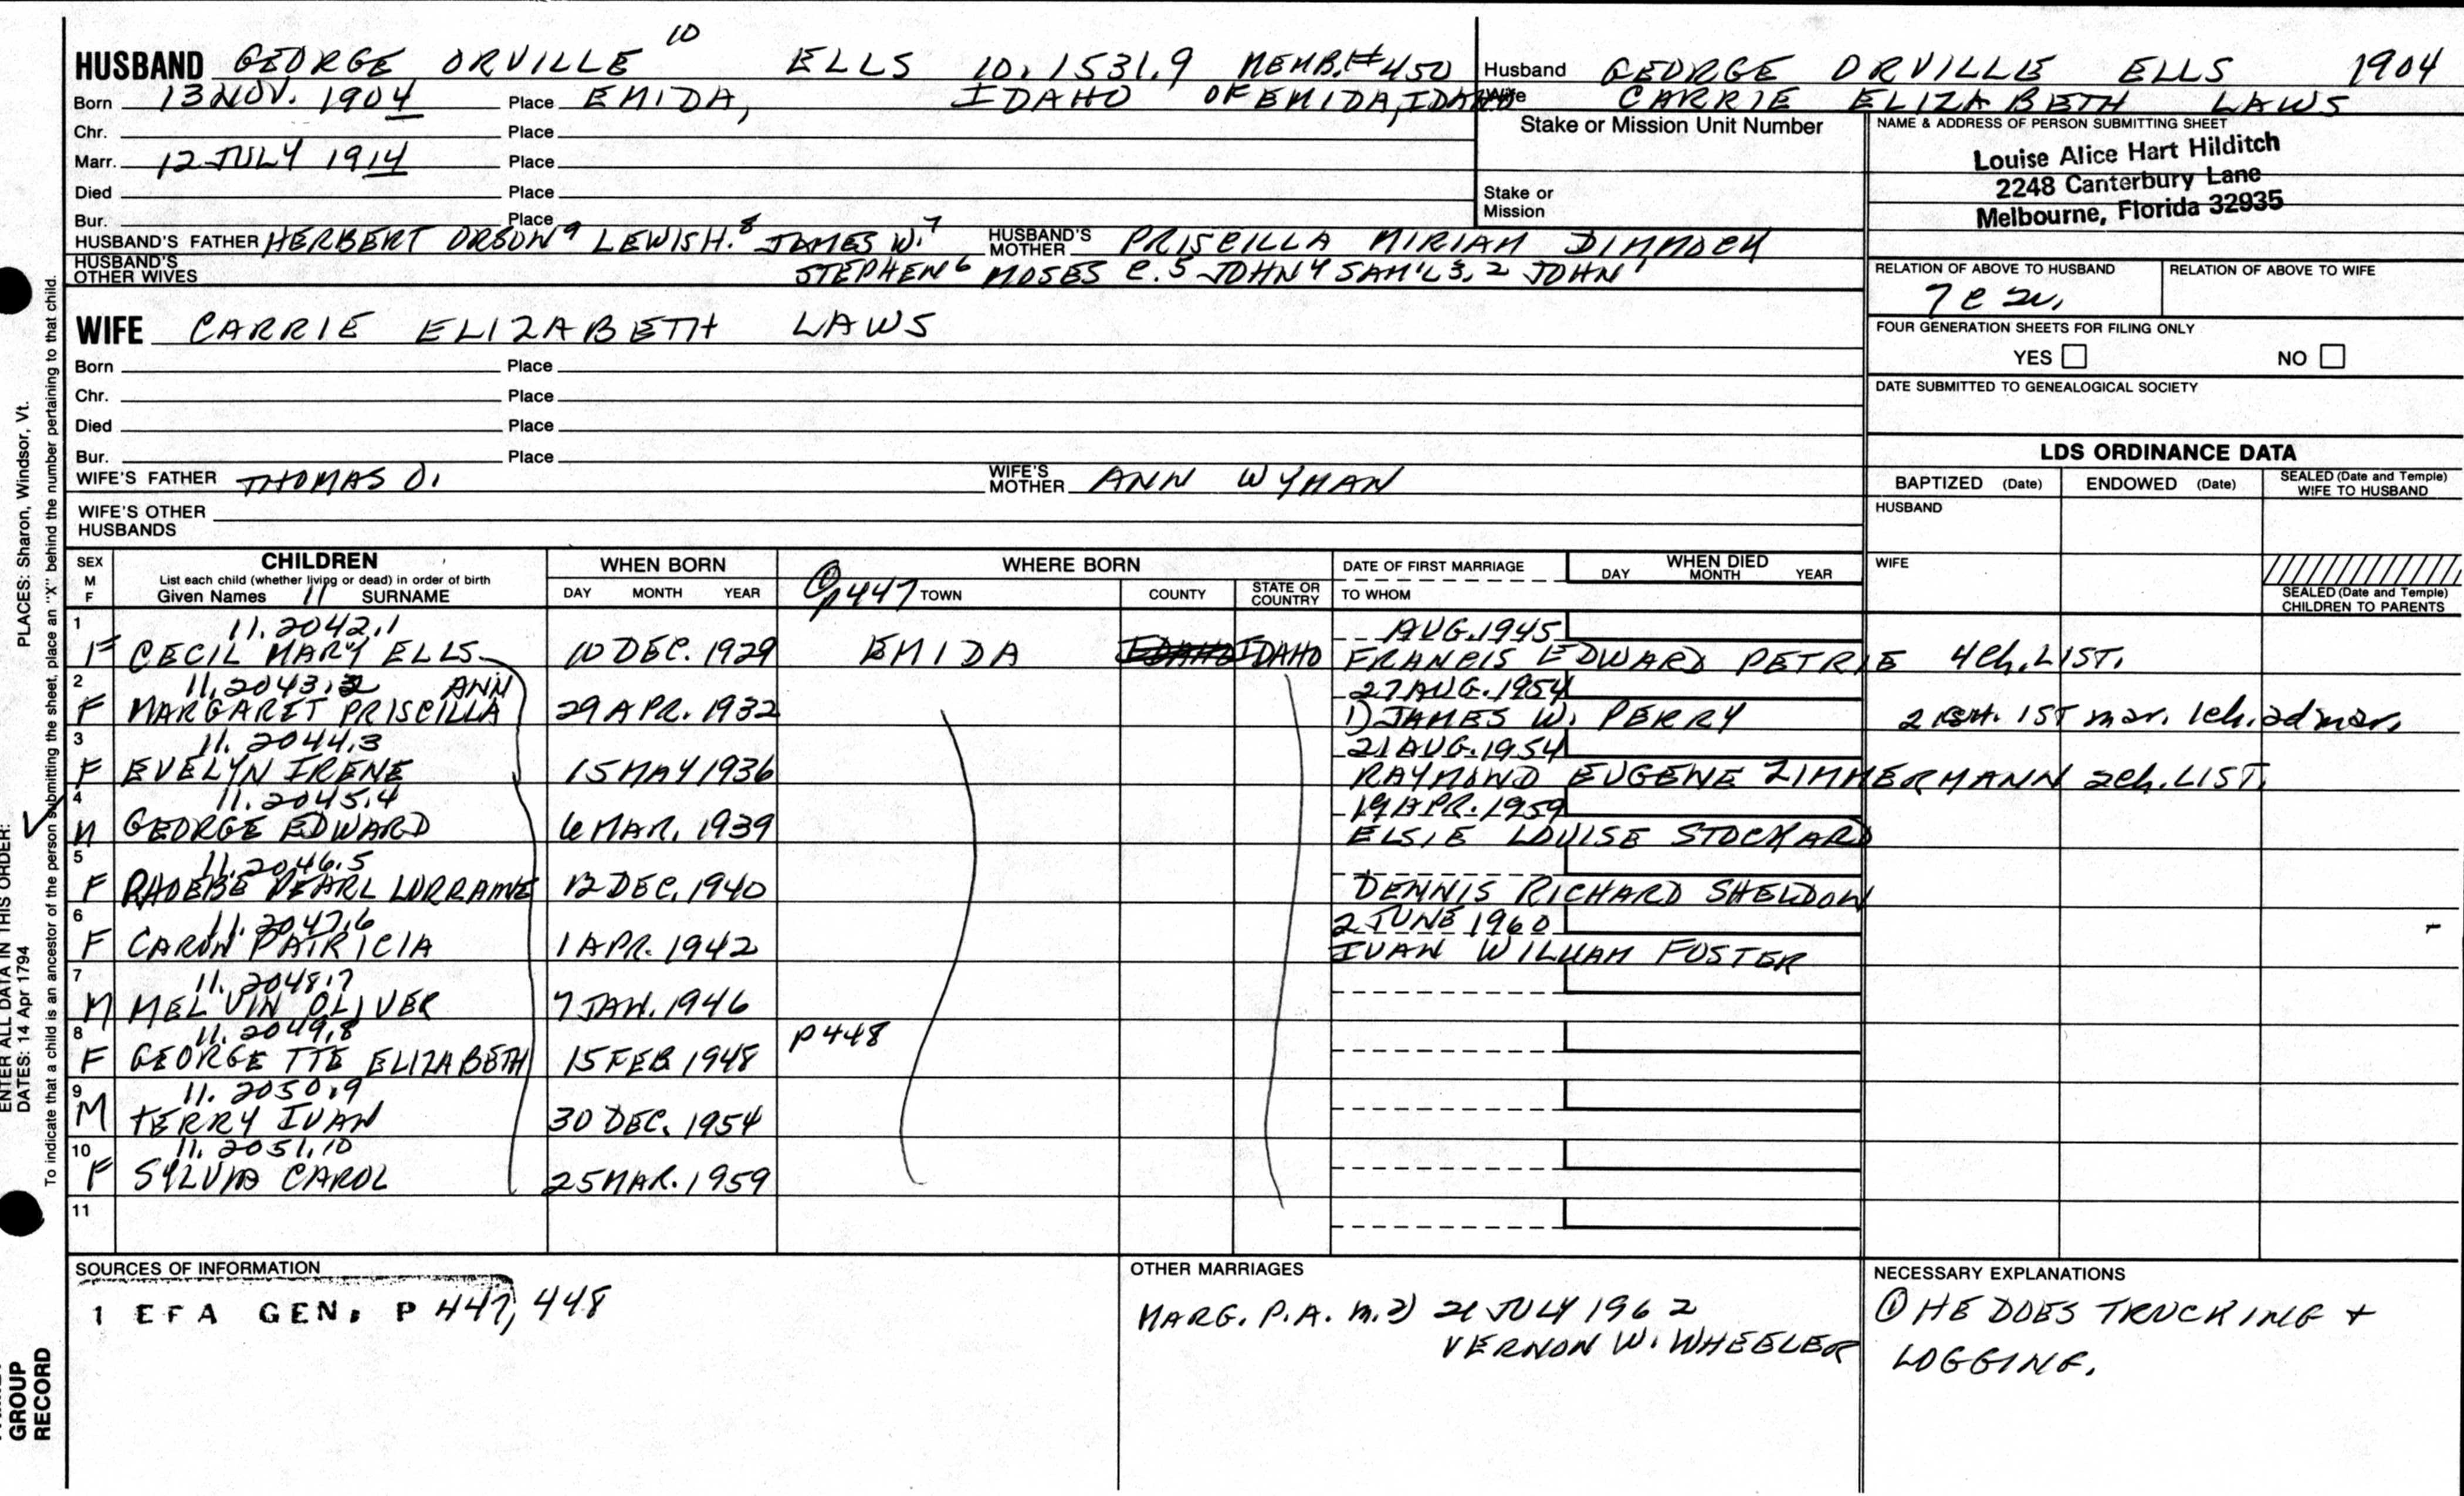 HUSBAND GEORGE ORVILLE 10 ELLS 10.1531.9 MEMB.#450
Born 13 NOV. 1904 Place EMIDA, IDAHO OF EMIDA, IDAHO
Chr. Place
Marr. 12 JULY 1914 Place
Died Place
Bur. Place
HUSBAND'S FATHER HERBERT ORSON 9 LEWIS H. 8 JAMES W. 7 HUSBAND'S MOTHER PRISCILLA MIRIAM DIMMOCK
HUSBAND'S OTHER WIVES STEPHEN 6 MOSES C. 5 JOHN 4 SAM'L 3, 2 JOHN 1
Husband GEORGE ORVILLE ELLS 1904
Wife CARRIE ELIZABETH LAWS
Stake or Mission Unit Number
Stake or Mission
NAME & ADDRESS OF PERSON SUBMITTING SHEET
Louise Alice Hart Hilditch
2248 Canterbury Lane
Melbourne, Florida 32935
RELATION OF ABOVE TO HUSBAND RELATION OF ABOVE TO WIFE
7 C
FOUR GENERATION SHEETS FOR FILING ONLY
YES NO
DATE SUBMITTED TO GENEALOGICAL SOCIETY
WIFE CARRIE ELIZABETH LAWS
Born Place
Chr. Place
Died Place
Bur. Place
WIFE'S FATHER THOMAS O. WIFE'S MOTHER ANN WYMAN
WIFE'S OTHER HUSBANDS
LDS ORDINANCE DATA
BAPTIZED (Date) ENDOWED (Date) SEALED (Date and Temple) WIFE TO HUSBAND
HUSBAND
WIFE
SEALED (Date and Temple) CHILDREN TO PARENTS
SEX M F
CHILDREN
List each child (whether living or dead) in order of birth
Given Names 11 SURNAME
WHEN BORN
DAY MONTH YEAR
WHERE BORN
① p447 TOWN COUNTY STATE OR COUNTRY
DATE OF FIRST MARRIAGE
TO WHOM
WHEN DIED
DAY MONTH YEAR
1 11.2042.1 AUG. 1945
F CECIL MARY ELLS 10 DEC. 1929 EMIDA IDAHO IDAHO FRANCIS EDWARD PETRIE 4 ch. LIST.
2 11.2043.2 ANN 27 AUG. 1954
F MARGARET PRISCILLA 29 APR. 1932 1) JAMES W. PERRY 2 CH. 1ST mar. 1ch. 2d mar.
3 11.2044.3 21 AUG. 1954
F EVELYN IRENE 15 MAY 1936 RAYMOND EUGENE ZIMMERMANN 2ch. LIST.
4 11.2045.4 19 APR. 1959
M GEORGE EDWARD 6 MAR. 1939 ELSIE LOUISE STOCKARD
5 11.2046.5
F PHOEBE PEARL LORRAINE 12 DEC. 1940 DENNIS RICHARD SHELDON
6 11.2047.6 2 JUNE 1960
F CARON PATRICIA 1 APR. 1942 IVAN WILLIAM FOSTER
7 11.2048.7
M MELVIN OLIVER 7 JAN. 1946
8 11.2049.8 p448
F GEORGETTE ELIZABETH 15 FEB 1948
9 11.2050.9
M TERRY IVAN 30 DEC. 1954
10 11.2051.10
F SYLVIA CAROL 25 MAR. 1959
11
SOURCES OF INFORMATION
1 EFA GEN. P 447, 448
OTHER MARRIAGES
MARG. P.A. m. 2) 21 JULY 1962
VERNON W. WHEELER
NECESSARY EXPLANATIONS
① HE DOES TRUCKING +
LOGGING.
ENTER ALL DATA IN THIS ORDER:
DATES: 14 Apr 1794
PLACES: Sharon, Windsor, Vt.
To indicate that a child is an ancestor of the person submitting the sheet, place an "X" behind the number pertaining to that child.
GROUP
RECORD